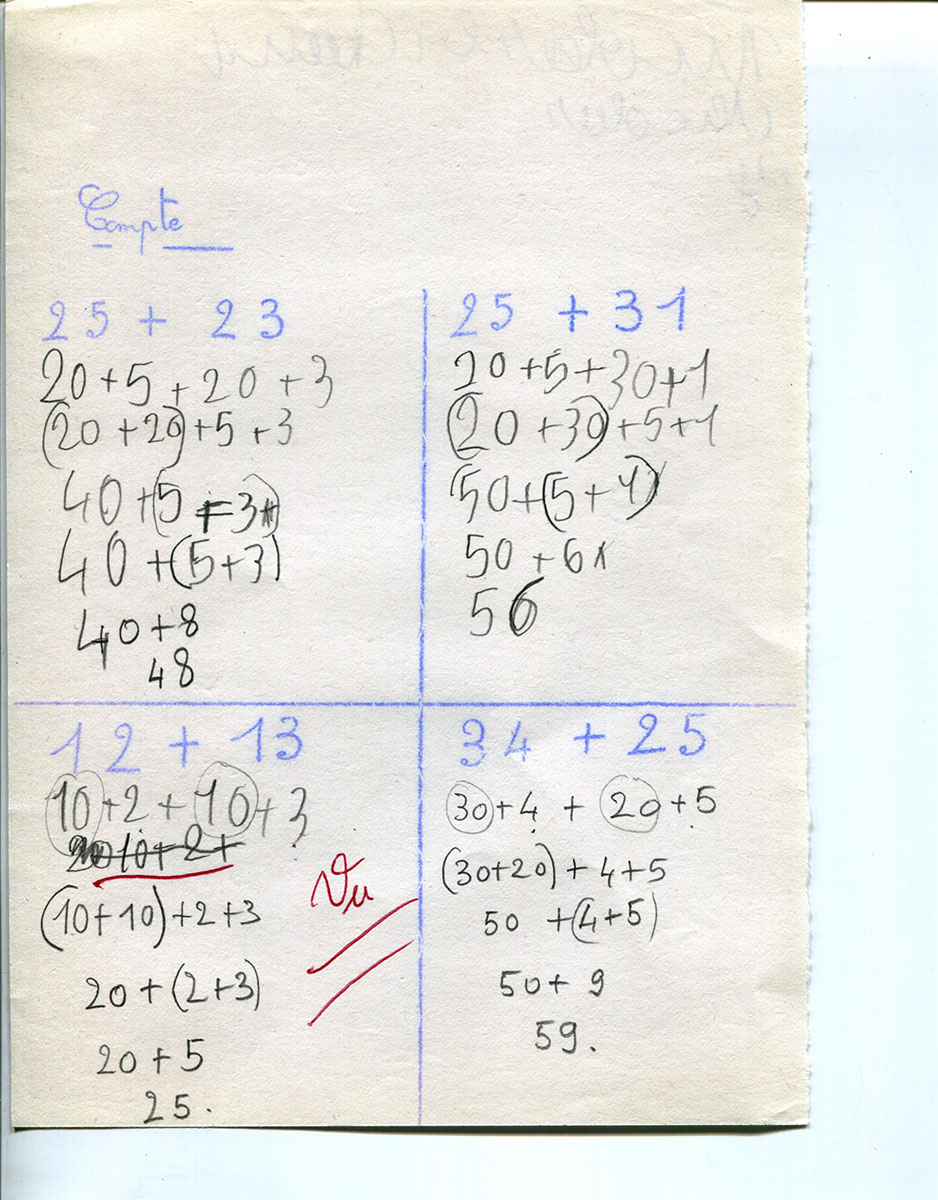 Compte
25 + 23
20+5+20+3
(20+20)+5+3
40+(5+3+)
40+(5+3)
40+8
48
25 + 31
20+5+30+1
(20+30)+5+1
50+(5+1)
50+6
56
12 + 13
10+2+10+3
10+2+
(10+10)+2+3
20+(2+3)
20+5
25.
Vu
34 + 25
30+4+20+5
(30+20)+4+5
50+(4+5)
50+9
59.